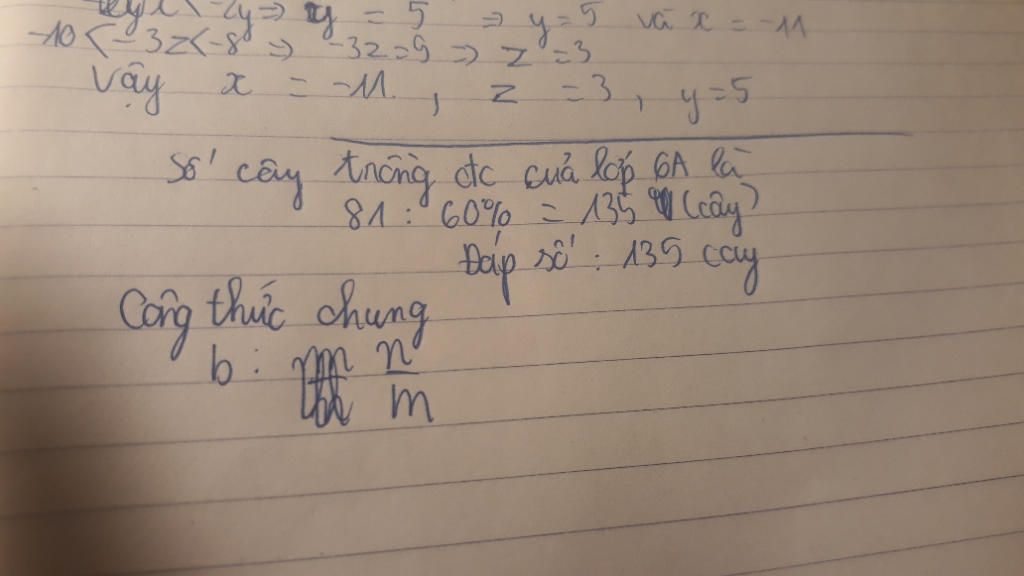 <-2y => y = 5 => y=5 và x = -11
-10<-3z<-8 => -3z=9 => z =3
Vậy x = -11. , z =3, y=5
Số cây trồng đc của lớp 6A là
81 : 60% = 135 (cây)
Đáp số : 135 cay
Công thức chung
b : n/m